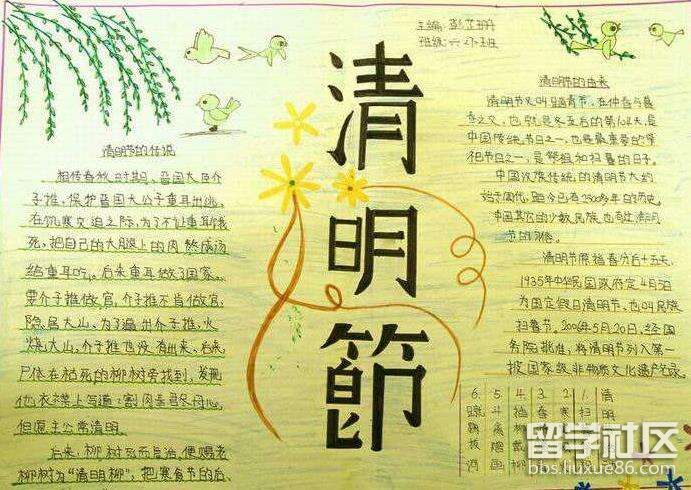 主编:
班级:六
清明節
清明节的传说
相传春秋时期,晋国大臣介
子推,保护晋国大公子重耳出逃
在饥寒交迫之际,为了不让重耳饿
死,把自己的大腿上的肉熬成汤
给重耳吃。后来重耳做了国家,
要介子推做官,介子推不肯做官,
隐居大山,为了逼出介子推,火
烧大山,介子推也没有出来,后来,
尸体在枯死的柳树旁找到,发现
他衣襟上写道:割肉奉君尽丹心,
但愿主公常清明。
后来,柳树死而复活,便赐老
柳树为“清明柳”,把寒食节的后
清明节的由来
清明节又叫踏青节,在仲春与暮
春之交,也就是冬至后的第108天,是
中国传统节日之一,也是最重要的祭
祀节日之一,是祭祖和扫墓的日子。
中国汉族传统的清明节大约
始于周代,距今已有2500多年的历史。
中国其它的少数民族也有过清明
节的习俗。
清明节原指春分后十五天,
1935年中华民国政府定4月5日
为国定假日清明节,也叫民族
扫墓节。2006年5月20日,经国
务院批准,将清明节列入第一
批国家级非物质文化遗产名录。
6 5 4 3 2 1 清
明
留学社区
bbs.liuxue86.com